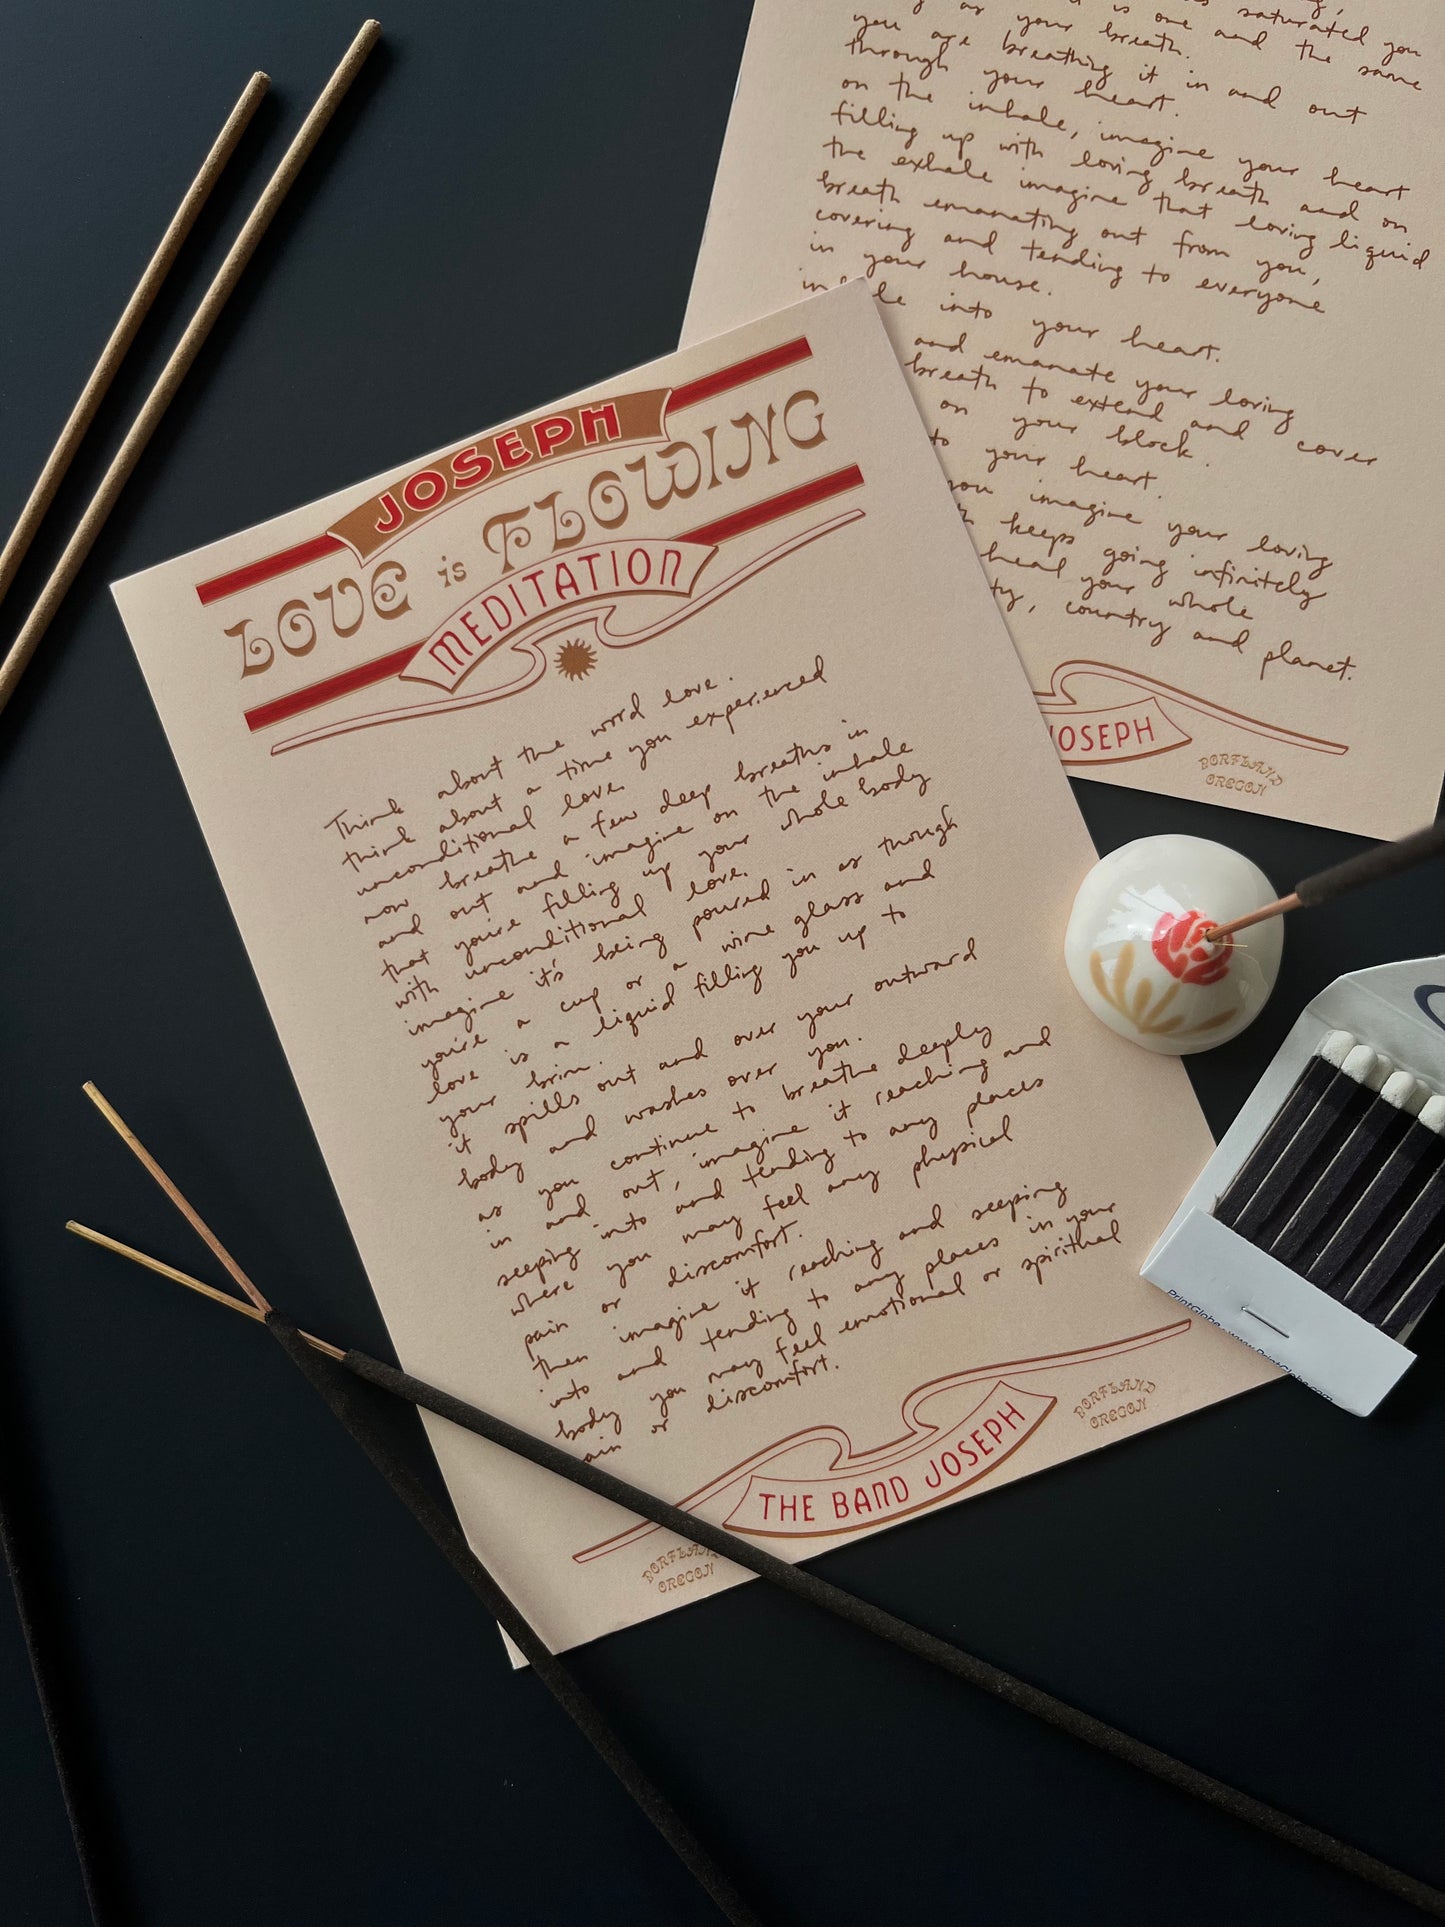 JOSEPH
LOVE is FLOWING
MEDITATION
Think about the word love.
think about a time you experienced
unconditional love.
now breathe a few deep breaths in
and out and imagine on the inhale
that you're filling up your whole body
with unconditional love.
imagine it's being poured in as though
you're a cup or a wine glass and
love is a liquid filling you up to
your brim.
it spills out and over your outward
body and washes over you.
as you continue to breathe deeply
in and out, imagine it reaching and
seeping into and tending to any places
where you may feel any physical
pain or discomfort.
then imagine it reaching and seeping
into and tending to any places in your
body you may feel emotional or spiritual
ain or discomfort.
THE BAND JOSEPH
PORTLAND
OREGON
PORTLAND
OREGON
saturated you
as your breath. is one and the same
you are breathing it in and out
through your heart.
on the inhale, imagine your heart
filling up with loving breath and on
the exhale imagine that loving liquid
breath emanating out from you,
covering and tending to everyone
in your house.
into your heart.
and emanate your loving
breath to extend and cover
on your block.
to your heart.
you imagine your loving
keeps going infinitely
heal your whole
ty, country and planet.
JOSEPH
PORTLAND
OREGON
PrintGlobe www.PrintGlobe.com